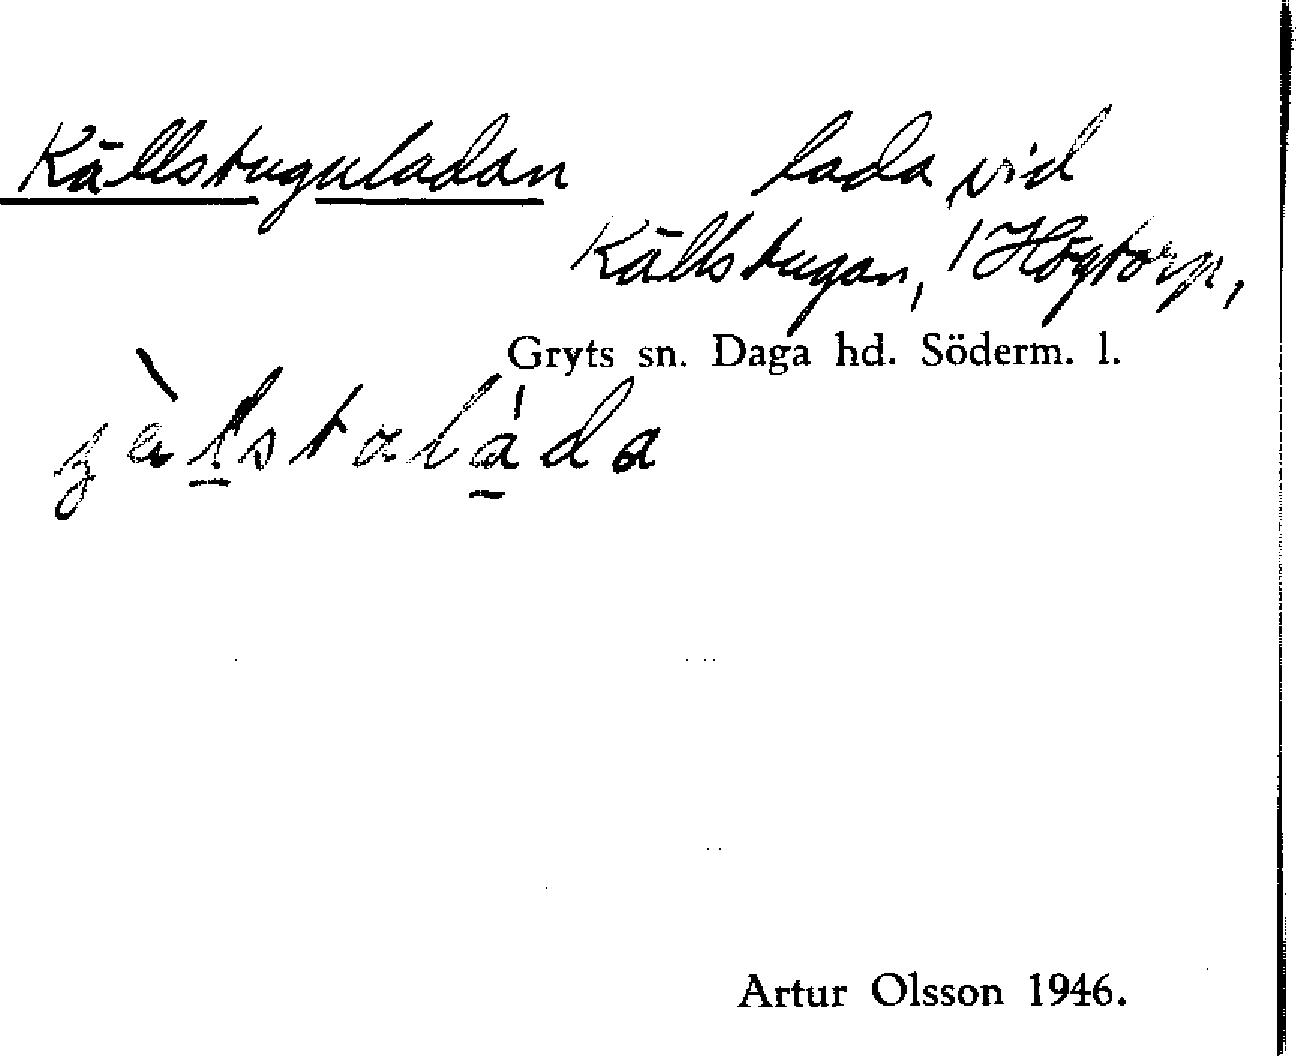 Källstuguladan lada vid
Källstugan, 1 Högtorp,
Gryts sn. Daga hd. Söderm. l.
Artur Olsson 1946.